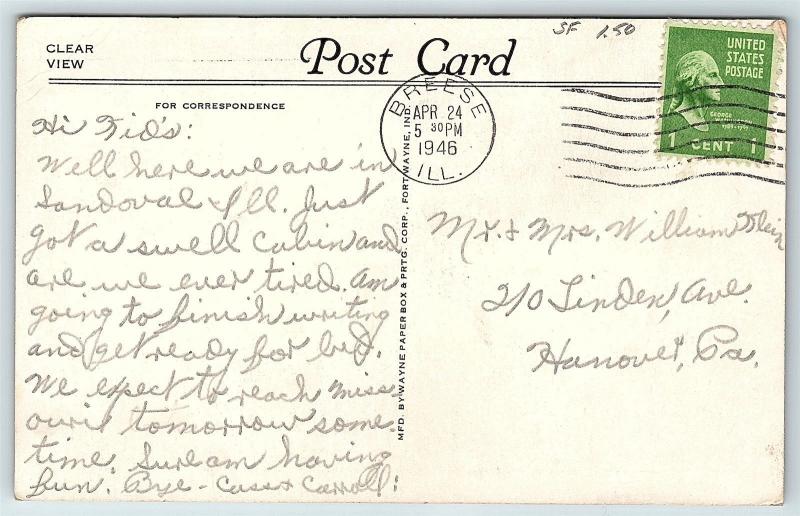 SF 1.50
CLEAR
VIEW
Post Card
FOR CORRESPONDENCE
BREESE
APR 24
5 30 PM
1946
ILL.
UNITED
STATES
POSTAGE
GEORGE
1 CENT 1
MFD. BY WAYNE PAPER BOX & PRTG. CORP., FORT WAYNE, IND.
Hi Kid's:
Well here we are in
Sandoval Ill. Just
got a swell cabin and
are we ever tired. Am
going to finish writing
and get ready for bed.
We expect to reach Miss
ouri tomorrow some
time. Sure am having
fun. Bye - Cass + Carroll:
Mr. & Mrs. William Klein
210 Linden, Ave.
Hanover, Pa.